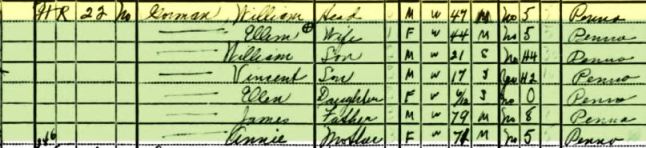 HR 22 No Gorman William Head M W 47 M No 5 Penna
—— Ellen Wife F W 44 M No 5 Penna
—— William Son M W 21 S No H4 Penna
—— Vincent Son M W 17 S Yes H2 Penna
—— Ellen Daughter F W S No 0 Penna
—— James Father M W 79 M No 8 Penna
—— Annie Mother F W M No 5 Penna